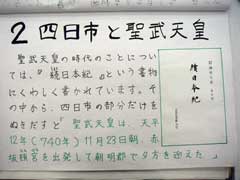 2 四日市と聖武天皇
聖武天皇の時代のことについ
ては、『続日本紀』という書物
にくわしく書かれています。そ
の中から、四日市の部分だけを
ぬきだすと 聖武天皇は、天平
12年(740年)11月23日朝、赤
坂頓宮を出発して朝明郡で夕方を迎えた
續日本紀